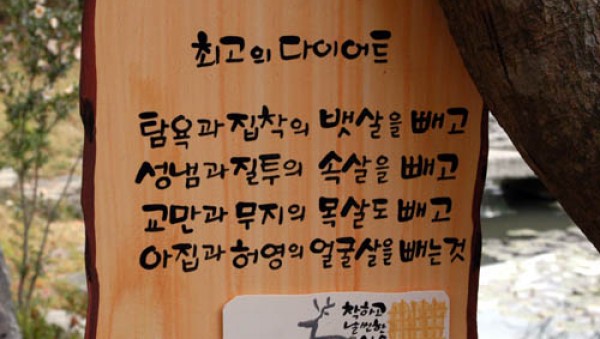 최고의 다이어트
탐욕과 집착의 뱃살을 빼고
성냄과 질투의 속살을 빼고
교만과 무지의 목살도 빼고
아집과 허영의 얼굴살을 빼는것
착하고
날씬한